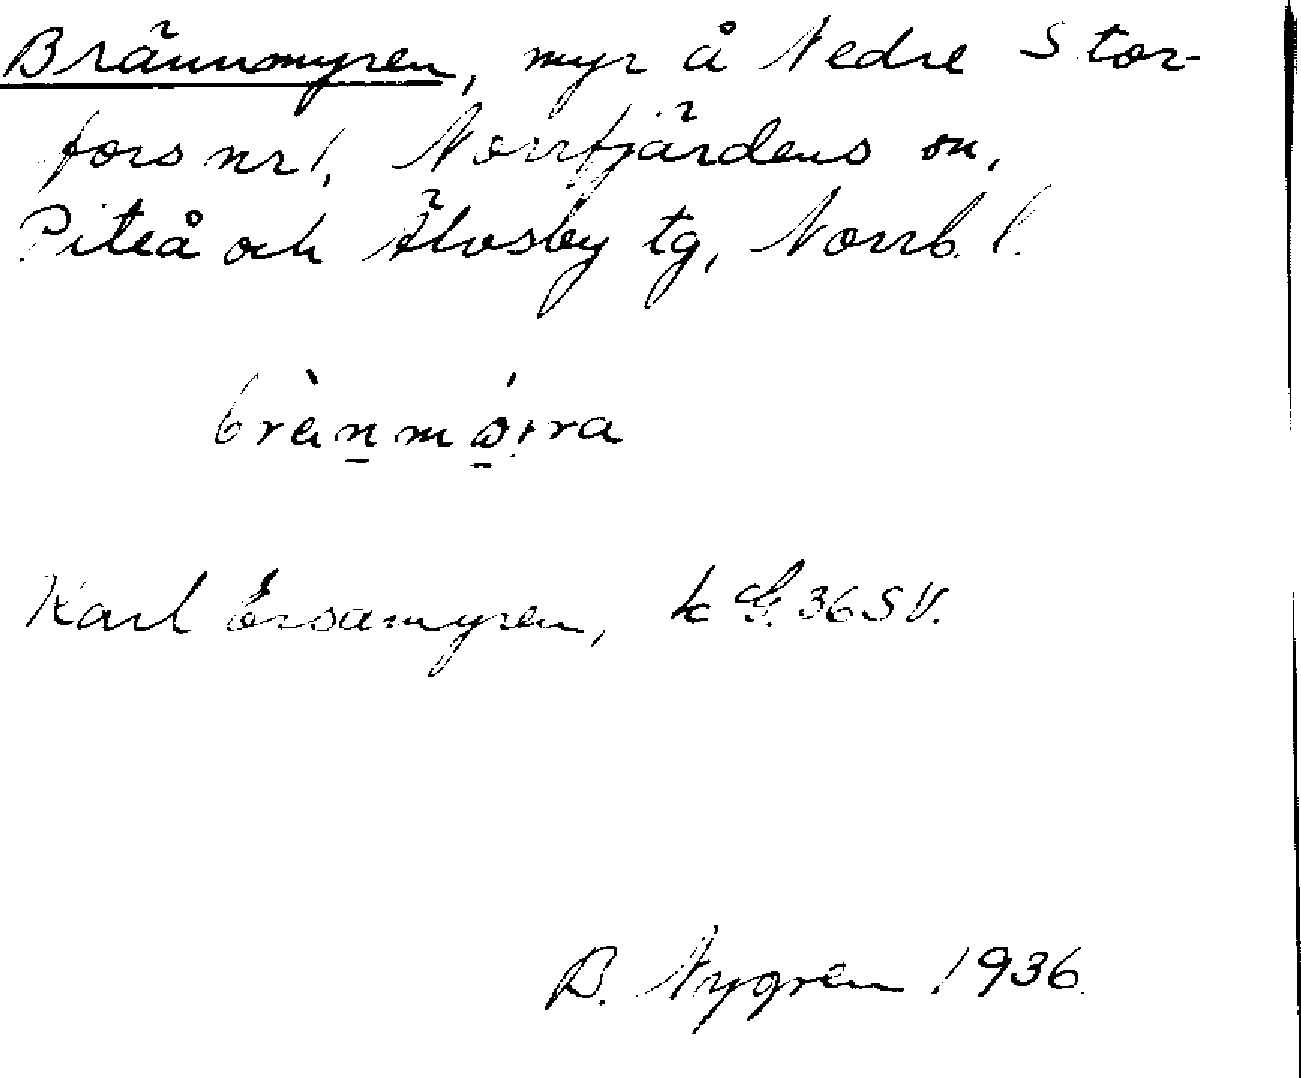 Brännmyren, myr å Nedre Stor-
fors nr 1, Norrfjärdens sn,
Piteå och Älvsby tg, Norrb. l.
Karl Ersamyren, k G. 36 SV.
B. Nygren 1936